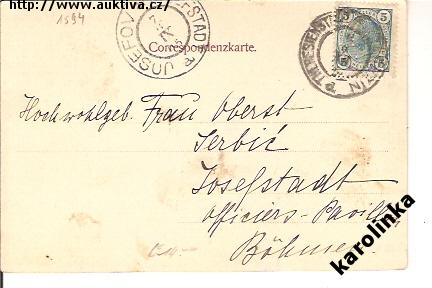 http://www.auktiva.cz/
1594
JOSEFOV
Correspondenzkarte.
5 5
Hochwohlgeb. Frau Oberst
Serbić
Josefstadt
Officiers-Pavill.
Böhmen
karolinka